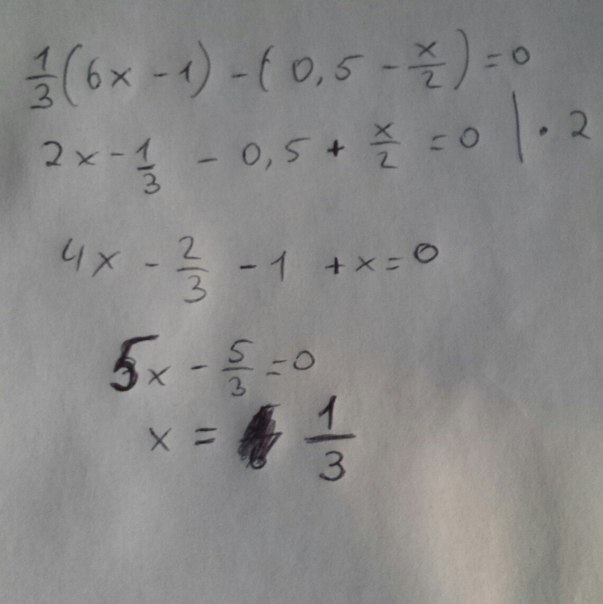 1/3(6x - 1) - (0,5 - x/2) = 0
2x - 1/3 - 0,5 + x/2 = 0 | · 2
4x - 2/3 - 1 + x = 0
5x - 5/3 = 0
x = 1/3